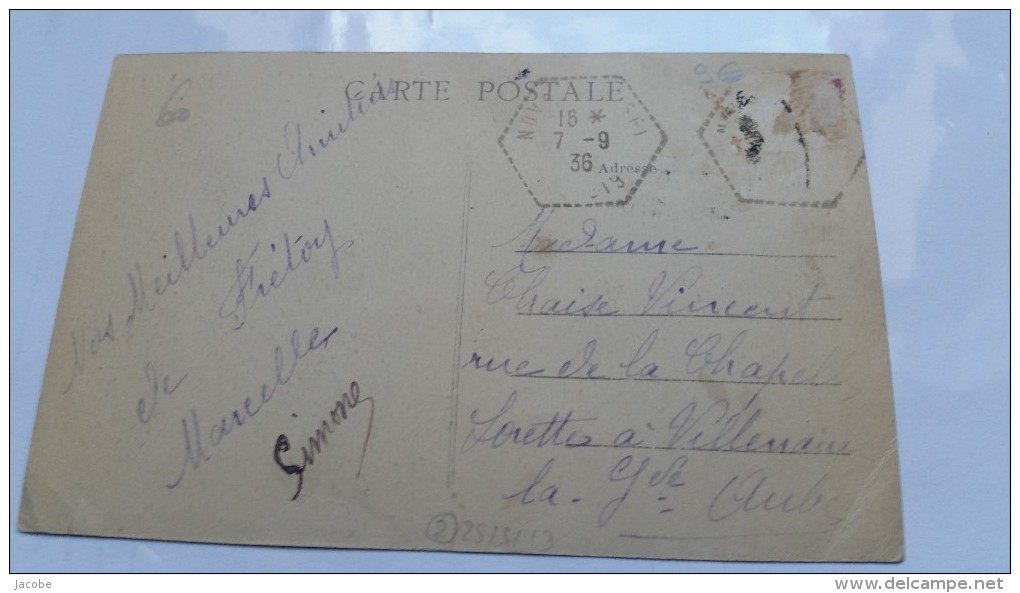 CARTE POSTALE
16 *
7 - 9
36
-19
Adresse
Nos Meilleures Amitiés
de Frétoy
Marcelle
Simone
Madame
Chaise Vincent
rue de la Chapelle
Lorette à Villenauxe
la - Gde Aube
2 25/5/13
Jacobe
www.delcampe.net